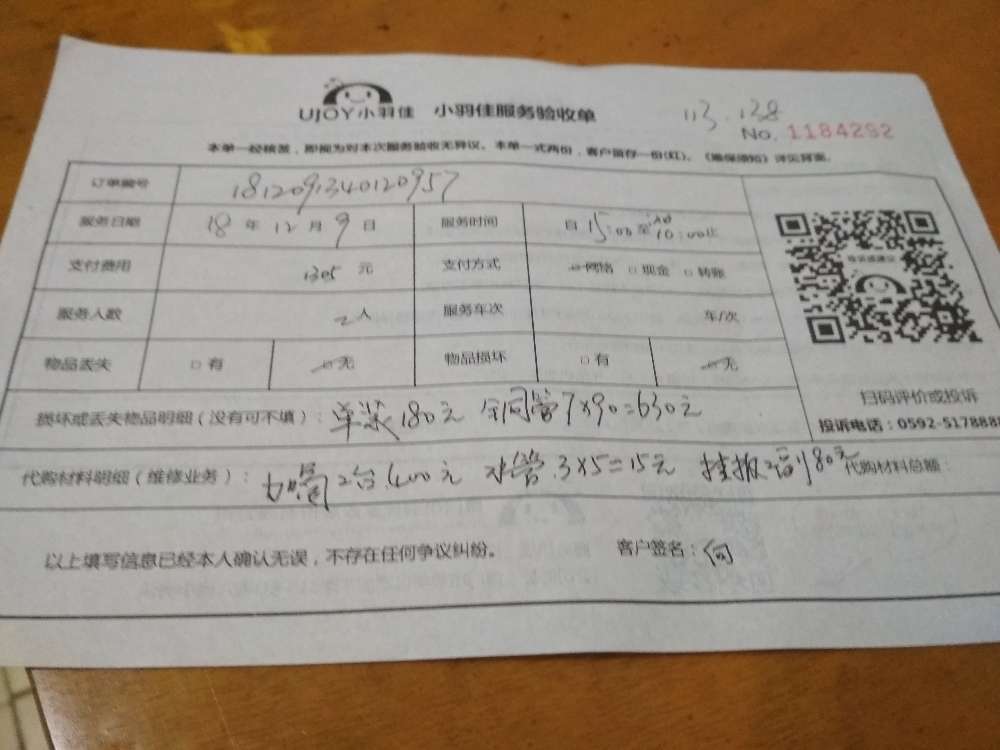 UJOY小羽佳 小羽佳服务验收单
113.138
No. 1184292
本单一经核发，即视为对本次服务验收无异议。本单一式两份，客户留存一份(红)。《维保须知》详见背面。
订单编号 1812091340120957
服务日期 18 年 12 月 9 日 服务时间 自 15:00 至 :00止
支付费用 1305 元 支付方式 网络 □ 现金 □ 转账
服务人数 2 人 服务车次 车/次
物品丢失 □ 有 □ 无 物品损坏 □ 有 □ 无
扫码评价或投诉
投诉电话：0592-5178888
损坏或丢失物品明细（没有可不填）： 单装180元 全铜管7×90=630元
代购材料明细（维修业务）： 2台.400元 水管.3×5=15元 挂板2副80元 代购材料总额：
以上填写信息已经本人确认无误，不存在任何争议纠纷。 客户签名： 何